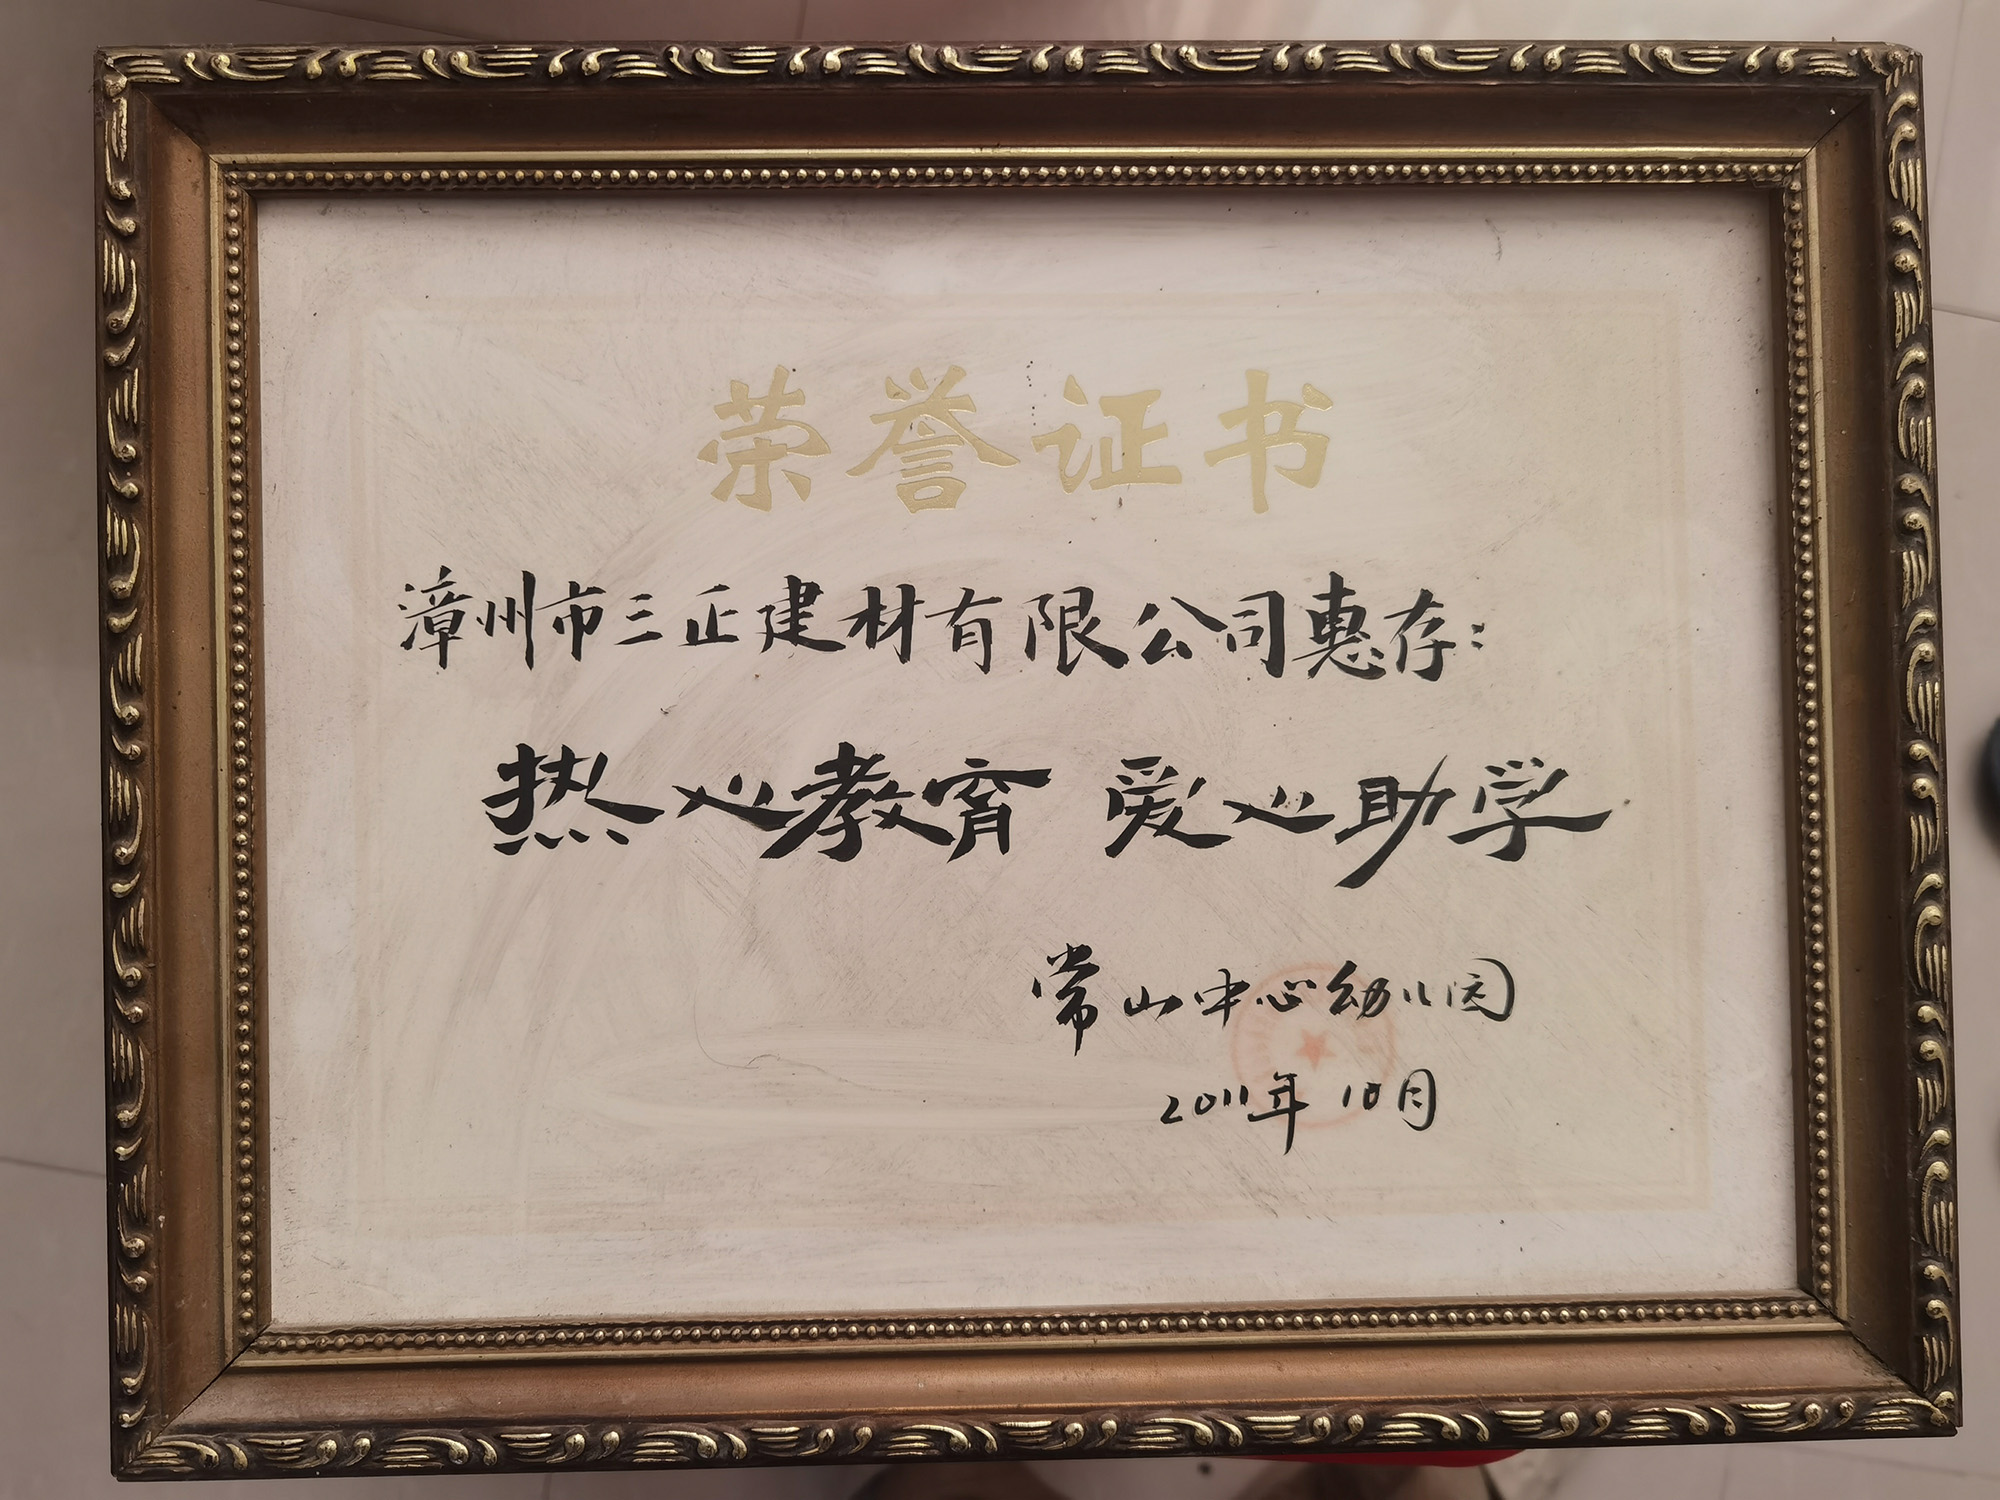 荣誉证书
漳州市三正建材有限公司惠存:
热心教育 爱心助学
常山中心幼儿园
2011年10月